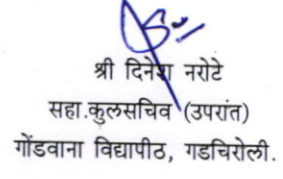 श्री दिनेश नरोटे
सहा.कुलसचिव (उपरांत)
गोंडवाना विद्यापीठ, गडचिरोली.